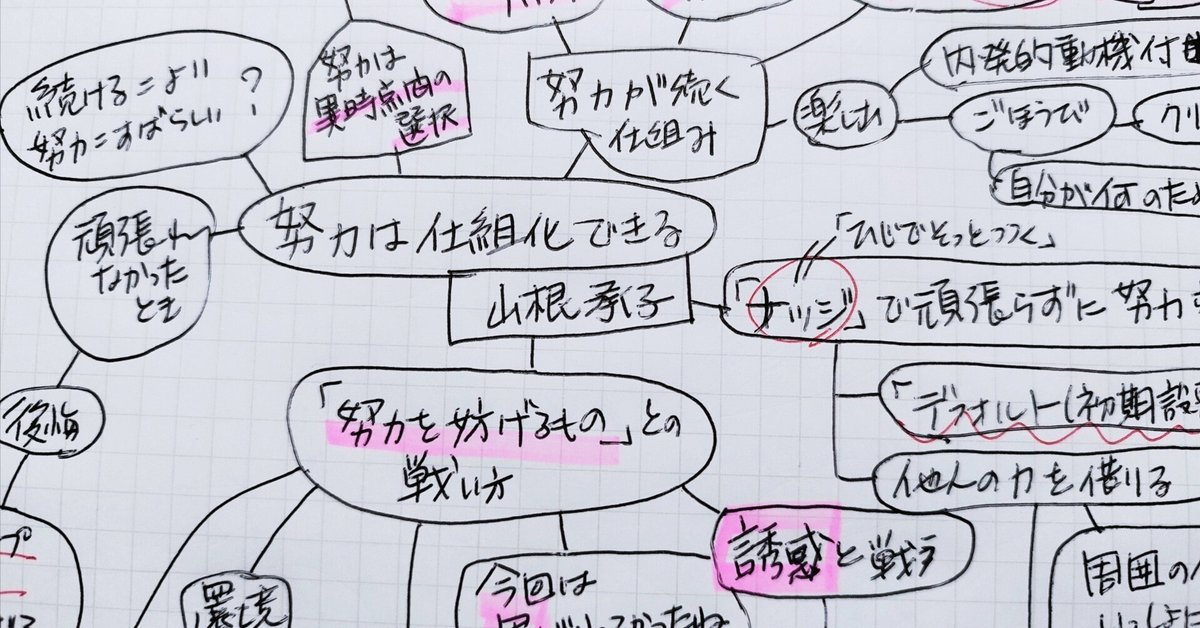 続けるこよ!!
努力こすばらしい
?
努力は
異時点間の
選択
努力が続く
仕組み
楽しむ
内発的動機付
ごほうび
クリ
自分が何のため
頑張れ
なかった
とき
努力は仕組化できる
山根承子
「ひじでそっとつつく」
「ナッジ」で頑張らずに努力
後悔
「努力を妨げるもの」との
戦い方
「デフォルト(初期設
他人の力を借りる
誘惑と戦う
環境
今回は
周囲の人
プ